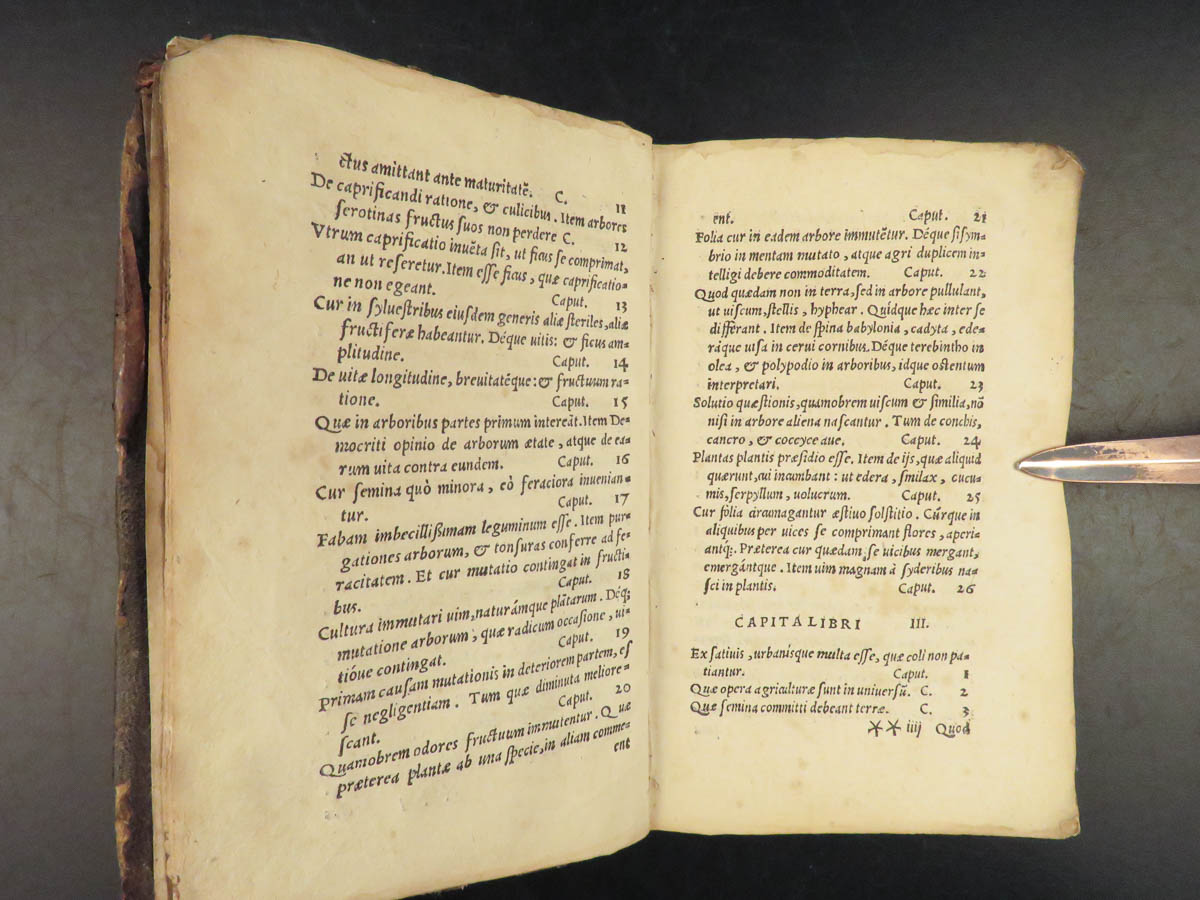 ctus amittant ante maturitatē. C. 11
De caprificandi ratione, & culicibus. Item arbores
serotinas fructus suos non perdere C. 12
Vtrum caprificatio inuēta sit, ut ficus se comprimat,
an ut reseretur. Item esse ficus, quæ caprificatio-
ne non egeant. Caput. 13
Cur in syluestribus eiusdem generis aliæ steriles, aliæ
fructiferæ habeantur. Déque uitis: & ficus am-
plitudine. Caput. 14
De uitæ longitudine, breuitatéque: & fructuum ra-
tione. Caput. 15
Quæ in arboribus partes primum intereāt. Item De-
mocriti opinio de arborum ætate, atque de ea-
rum uita contra eundem. Caput. 16
Cur semina quò minora, eò feraciora inuenian-
tur. Caput. 17
Fabam imbecillißimam leguminum esse. Item pur-
gationes arborum, & tonsuras conferre ad fe-
racitatem. Et cur mutatio contingat in fructi-
bus. Caput. 18
Cultura immutari uim, naturámque plātarum. Déq;
mutatione arborum, quæ radicum occasione, ui-
tióue contingat. Caput. 19
Primam causam mutationis in deteriorem partem, es
se negligentiam. Tum quæ diminuta meliore-
scant. Caput. 20
Quamobrem odores fructuum immutentur. Quæ
præterea plantæ ab una specie, in aliam comme-
ent
ent. Caput. 21
Folia cur in eadem arbore immutētur. Déque sisym-
brio in mentam mutato, atque agri duplicem in-
telligi debere commoditatem. Caput. 22
Quod quædam non in terra, sed in arbore pullulant,
ut uiscum, stelis, hyphear. Quídque hæc inter se
differant. Item de spina babylonia, cadyta, ede-
ráque uisa in cerui cornibus. Déque terebintho in
olea, & polypodio in arboribus, idque ostentum
interpretari. Caput. 23
Solutio quæstionis, quamobrem uiscum & similia, nō
nisi in arbore aliena nascantur. Tum de conchis,
cancro, & coccyce aue. Caput. 24
Plantas plantis præsidio esse. Item de ijs, quæ aliquid
quærunt, cui incumbant: ut edera, similax, cucu-
mis, serpyllum, uolucrum. Caput. 25
Cur folia circumagantur æstiuo solstitio. Cúrque in
aliquibus per uices se comprimant flores, aperi-
antq;. Præterea cur quædam se uicibus mergant,
emergántque. Item uim magnam à syderibus na-
sci in plantis. Caput. 26
CAPITA LIBRI III.
Ex satiuis, urbanisque multa esse, quæ coli non pa-
tiantur. Caput. 1
Quæ opera agriculturæ sunt in uniuersū. C. 2
Quæ semina committi debeant terræ. C. 3
** iiij Quod